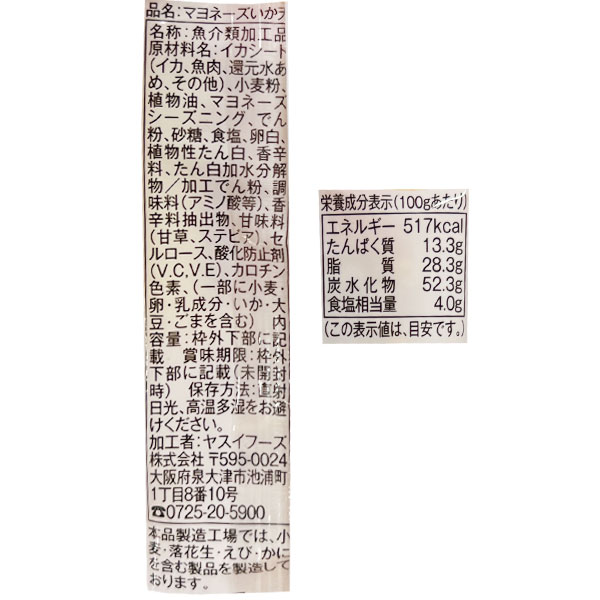 品名:マヨネーズいかラ
名称:魚介類加工品
原材料名:イカシート
(イカ、魚肉、還元水あ
め、その他)、小麦粉、
植物油、マヨネーズ
シーズニング、でん
粉、砂糖、食塩、卵白、
植物性たん白、香辛
料、たん白加水分解
物/加工でん粉、調
味料(アミノ酸等)、香
辛料抽出物、甘味料
(甘草、ステビア)、セ
ルロース、酸化防止剤
(V.C、V.E)、カロチン
色素、(一部に小麦・
卵・乳成分・いか・大
豆・ごまを含む) 内
容量:枠外下部に記
載 賞味期限:枠外
下部に記載(未開封
時) 保存方法:直射
日光、高温多湿をお避
けください。
加工者:ヤスイフーズ
株式会社 〒595-0024
大阪府泉大津市池浦町
1丁目8番10号
☎0725-20-5900
本品製造工場では、小
麦・落花生・えび・かに
を含む製品を製造して
おります。
栄養成分表示(100gあたり)
エネルギー 517kcal
たんぱく質 13.3g
脂質 28.3g
炭水化物 52.3g
食塩相当量 4.0g
(この表示値は、目安です。)